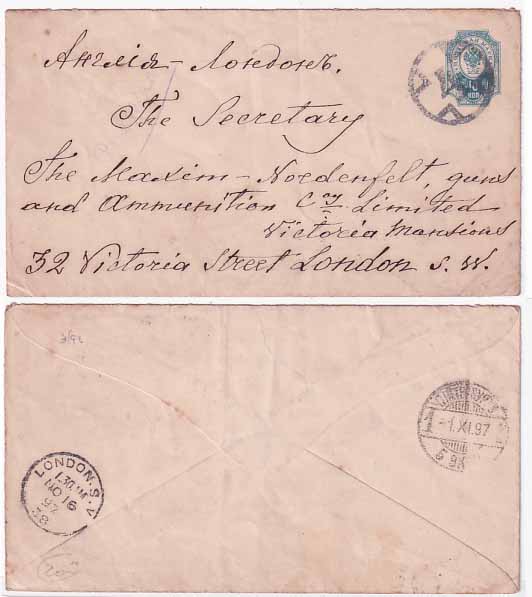 Англiя - Лондонъ.
The Secretary
The Maxim - Nordenfelt, guns
and Ammunition Coy. Limited
Victoria Mansions
32 Victoria Street London S. W.
10
КОП
3/92
-1.XI.97
LONDON. S.W
1.30 PM
NO 16
97
38